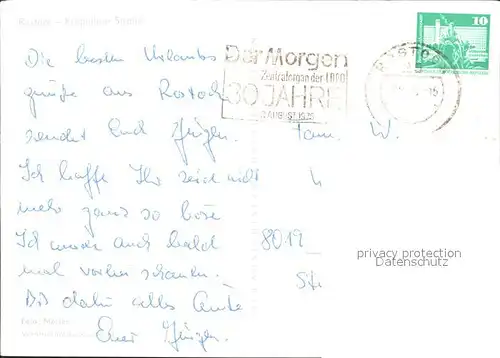 Rostock -
Die besten Urlaubs
grüße aus Rostock
sendet Euch Jürgen.
Ich hoffe Ihr seid nicht
mehr ganz so böse
Ich werde auch bald
mal vorbei schauen.
Bis dahin alles Gute
Euer Jürgen.
Der Morgen
Zentralorgan der LDPD
30 JAHRE
ROSTOCK
10
Fam. W.
8019
privacy protection
Datenschutz